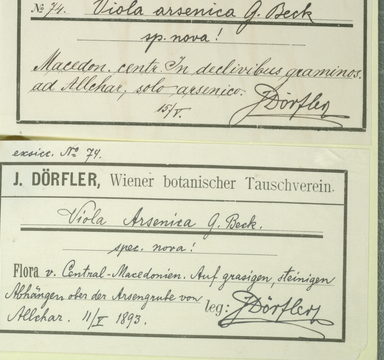 № 74. Viola arsenica G. Beck
sp. nova!
Macedon. centr. In declivibus graminos.
ad Allchar, solo arsenico.
15/V. J Dörfler
exsicc. № 74.
J. DÖRFLER, Wiener botanischer Tauschverein.
Viola Arsenica G. Beck.
spec. nova!
Flora v. Central-Macedonien. Auf grasigen, steinigen
Abhängen ober der Arsengrube von
Allchar. 11/V 1893. leg: J Dörfler